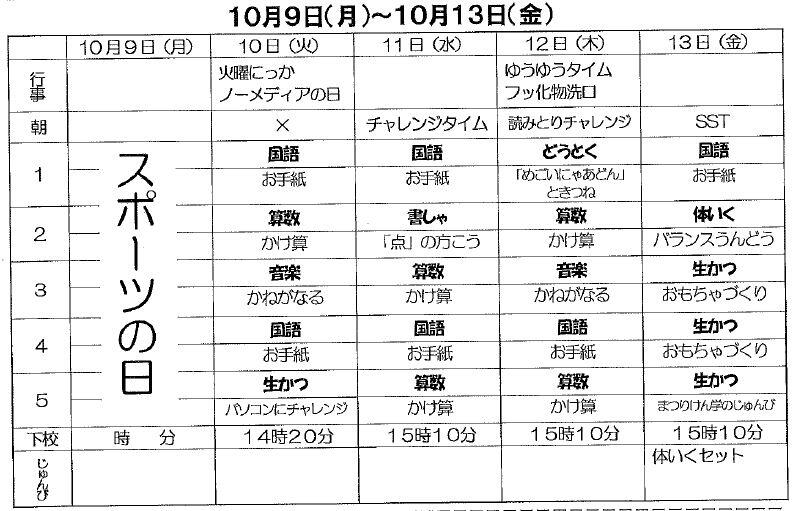 10月9日(月)～10月13日(金)
10月9日(月) 10日(火) 11日(水) 12日(木) 13日(金)
行事 火曜にっか ゆうゆうタイム
ノーメディアの日 フッ化物洗口
朝 × チャレンジタイム 読みとりチャレンジ SST
スポーツの日
1 国語 国語 どうとく 国語
お手紙 お手紙 「めごいにゃあどん」 お手紙
ときつね
2 算数 書しゃ 算数 体いく
かけ算 「点」の方こう かけ算 バランスうんどう
3 音楽 算数 音楽 生かつ
かねがなる かけ算 かねがなる おもちゃづくり
4 国語 国語 国語 生かつ
お手紙 お手紙 お手紙 おもちゃづくり
5 生かつ 算数 算数 生かつ
パソコンにチャレンジ かけ算 かけ算 まつりけん学のじゅんび
下校 時 分 14時20分 15時10分 15時10分 15時10分
じゅんび 体いくセット